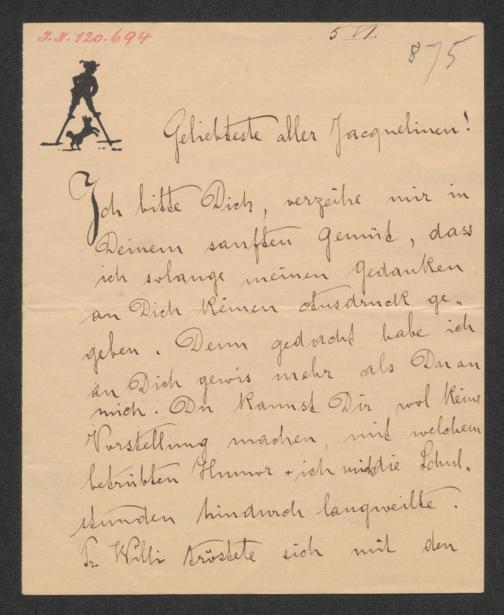 I.N. 120.694
5 VI.
875
Geliebteste aller Jacquelinen!
Ich bitte Dich, verzeihe mir in
Deinem sanften Gemüt, dass
ich solange meinen Gedanken
an Dich keinen Ausdruck ge-
geben. Denn gedacht habe ich
an Dich gewis mehr als Du an
mich. Du kannst Dir wol keine
Vorstellung machen, mit welchem
betrübten Humor ich mich die Schul-
stunden hindurch langweilte.
Willi tröstete sich mit den